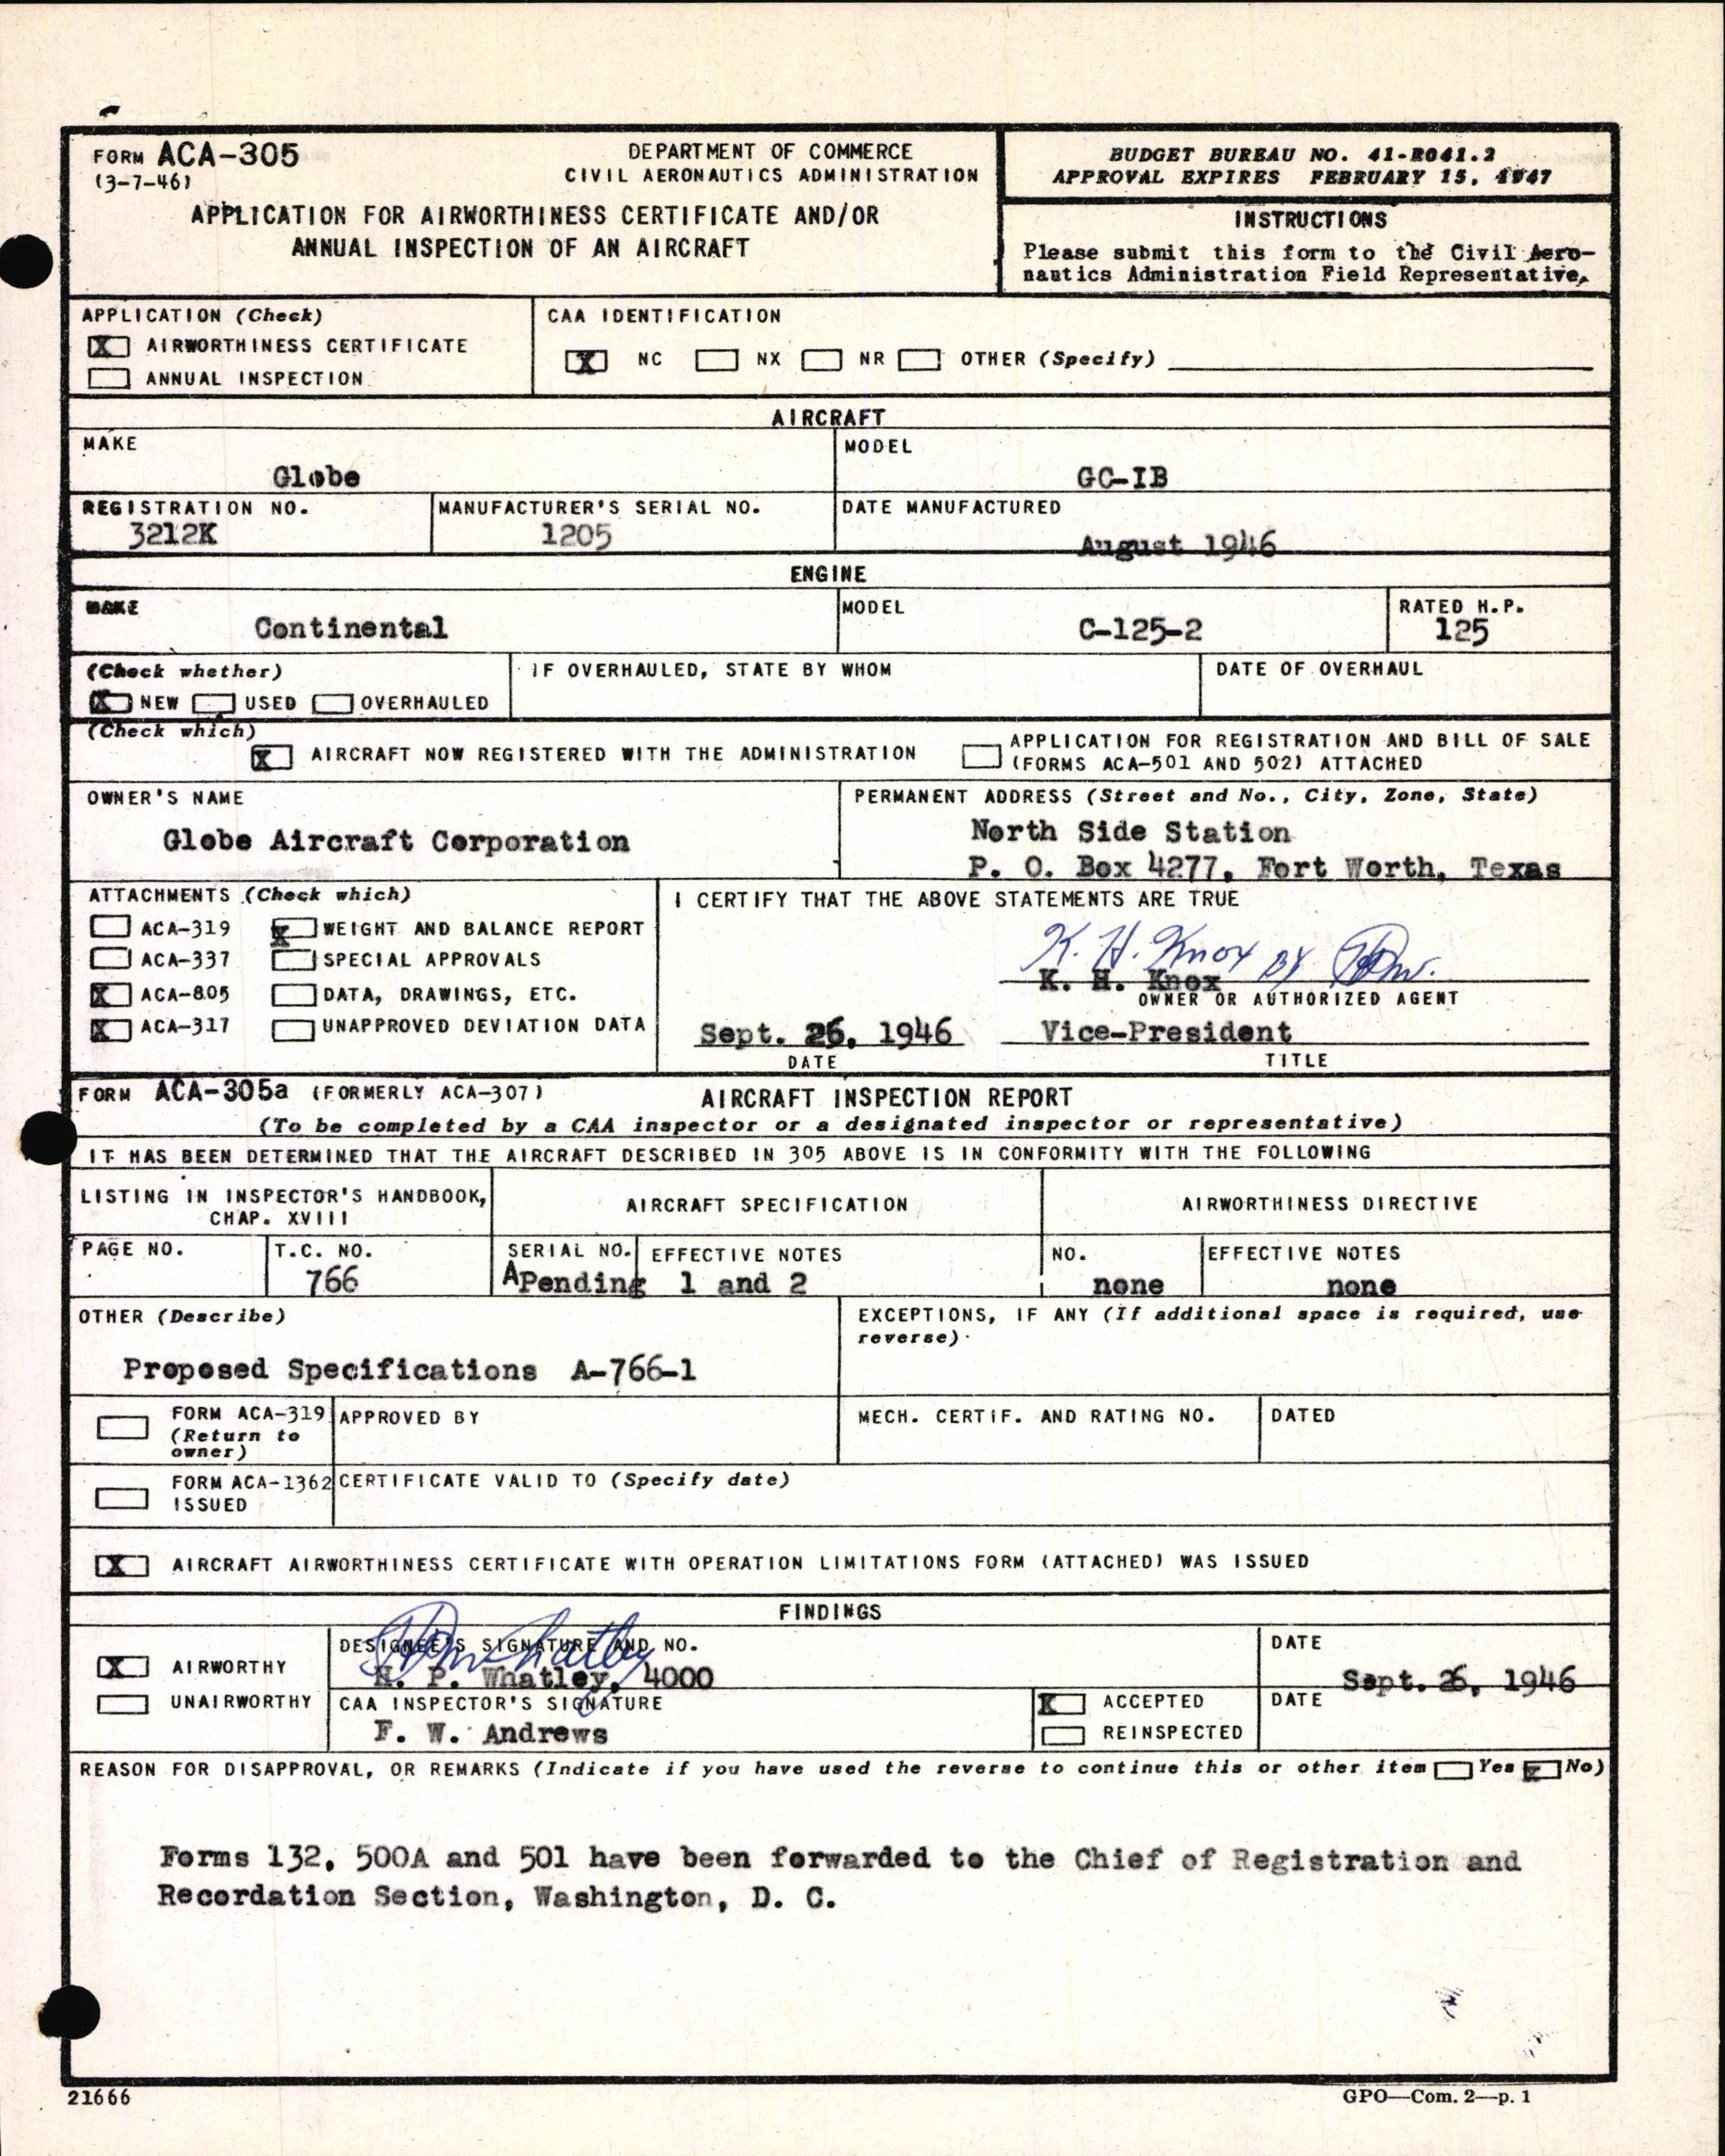 FORM ACA-305
(3-7-46)
DEPARTMENT OF COMMERCE
CIVIL AERONAUTICS ADMINISTRATION
APPLICATION FOR AIRWORTHINESS CERTIFICATE AND/OR
ANNUAL INSPECTION OF AN AIRCRAFT
BUDGET BUREAU NO. 41-R041.2
APPROVAL EXPIRES FEBRUARY 15, 1947
INSTRUCTIONS
Please submit this form to the Civil Aero-
nautics Administration Field Representative.
APPLICATION (Check)
X AIRWORTHINESS CERTIFICATE
ANNUAL INSPECTION
CAA IDENTIFICATION
X NC NX NR OTHER (Specify)
AIRCRAFT
MAKE
Globe
MODEL
GC-IB
REGISTRATION NO.
3212K
MANUFACTURER'S SERIAL NO.
1205
DATE MANUFACTURED
August 1946
ENGINE
MAKE
Continental
MODEL
C-125-2
RATED H.P.
125
(Check whether)
X NEW USED OVERHAULED
IF OVERHAULED, STATE BY WHOM
DATE OF OVERHAUL
(Check which)
X AIRCRAFT NOW REGISTERED WITH THE ADMINISTRATION
APPLICATION FOR REGISTRATION AND BILL OF SALE
(FORMS ACA-501 AND 502) ATTACHED
OWNER'S NAME
Globe Aircraft Corporation
PERMANENT ADDRESS (Street and No., City, Zone, State)
North Side Station
P. O. Box 4277, Fort Worth, Texas
ATTACHMENTS (Check which)
ACA-319 X WEIGHT AND BALANCE REPORT
ACA-337 SPECIAL APPROVALS
X ACA-805 DATA, DRAWINGS, ETC.
X ACA-317 UNAPPROVED DEVIATION DATA
I CERTIFY THAT THE ABOVE STATEMENTS ARE TRUE
K. H. Knox BY
K. H. Knox
OWNER OR AUTHORIZED AGENT
Sept. 26, 1946 Vice-President
DATE TITLE
FORM ACA-305a (FORMERLY ACA-307) AIRCRAFT INSPECTION REPORT
(To be completed by a CAA inspector or a designated inspector or representative)
IT HAS BEEN DETERMINED THAT THE AIRCRAFT DESCRIBED IN 305 ABOVE IS IN CONFORMITY WITH THE FOLLOWING
LISTING IN INSPECTOR'S HANDBOOK,
CHAP. XVIII
AIRCRAFT SPECIFICATION
AIRWORTHINESS DIRECTIVE
PAGE NO.
T.C. NO.
766
SERIAL NO.
A Pending
EFFECTIVE NOTES
1 and 2
NO.
none
EFFECTIVE NOTES
none
OTHER (Describe)
Proposed Specifications A-766-1
EXCEPTIONS, IF ANY (If additional space is required, use
reverse).
FORM ACA-319
(Return to
owner)
APPROVED BY
MECH. CERTIF. AND RATING NO.
DATED
FORM ACA-1362
ISSUED
CERTIFICATE VALID TO (Specify date)
X AIRCRAFT AIRWORTHINESS CERTIFICATE WITH OPERATION LIMITATIONS FORM (ATTACHED) WAS ISSUED
FINDINGS
X AIRWORTHY
UNAIRWORTHY
DESIGNEE'S SIGNATURE AND NO.
H P Whatley
H. P. Whatley, 4000
DATE
Sept. 26, 1946
CAA INSPECTOR'S SIGNATURE
F. W. Andrews
X ACCEPTED
REINSPECTED
DATE
REASON FOR DISAPPROVAL, OR REMARKS (Indicate if you have used the reverse to continue this or other item Yes X No)
Forms 132, 500A and 501 have been forwarded to the Chief of Registration and
Recordation Section, Washington, D. C.
21666
GPO—Com. 2—p. 1